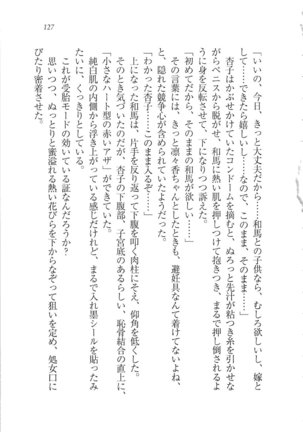 127
「いいの、今日、きっと大丈夫だから……和馬との子供なら、むしろ欲しいし、嫁と
して……できたら嬉しいし……なので、このまま、そのまま……」
　杏子はかぶせかけていたコンドームを摘むと、ぬろっと先汁が粘つき糸を引かせな
がらペニスから脱がせ、和馬に熱い肌を押しつけて抱きつき、まるで押し倒されるよ
うに身を反転させて、下になりつつ訴えた。
「初めてだから、そのままの和馬が欲しい……」
　その言葉には、きっと凛々香ちゃんとしたときも、避妊具なんて着けてないよね、
と、隠れた競争心が含められていたようだった。
「わかった杏子……このまま入るぞ……」
　上になった和馬は、片手を反り返って下腹を叩く肉柱にそえ、仰角を低くした。
　そのとき気づいたのだが、杏子の下腹部、子宮底のあるらしい、恥骨結合の直上に、
「小さなハート型の赤いアザ」ができていた。
　純白肌の内側から浮き上がっている感じだけれど、まるで入れ墨シールを貼ったみ
たいに、くっきりとしている。
　これが受胎モードの効いている証なんだろうか？
　思いつつ、ぬっとりと蜜溢れる熱い花びらを下からなぞって狙いを定め、処女口に
ぴたり密着させた。